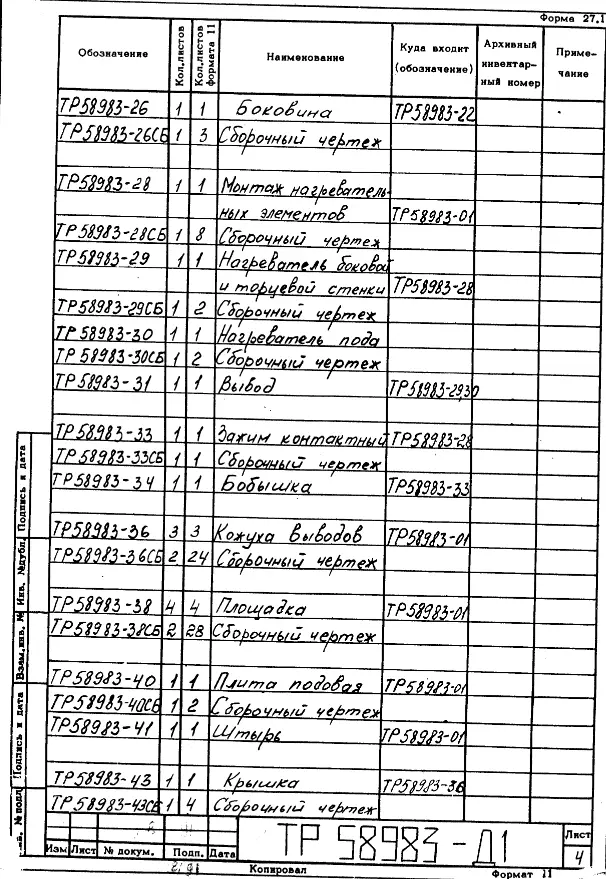 Форма 27.1
Обозначение Кол.листов Кол.листов формата 11 Наименование Куда входит (обозначение) Архивный инвентар-ный номер Приме-чание
ТР58983-26 1 1 Боковина ТР58983-22
ТР58983-26СБ 1 3 Сборочный чертеж
ТР58983-28 1 1 Монтаж нагреватель-
ных элементов ТР58983-01
ТР58983-28СБ 1 8 Сборочный чертеж
ТР58983-29 1 1 Нагреватель боковой
и торцевой стенки ТР58983-28
ТР58983-29СБ 1 2 Сборочный чертеж
ТР58983-30 1 1 Нагреватель пода
ТР58983-30СБ 1 2 Сборочный чертеж
ТР58983-31 1 1 Вывод ТР58983-29,30
ТР58983-33 1 1 Зажим контактный ТР58983-28
ТР58983-33СБ 1 1 Сборочный чертеж
ТР58983-34 1 1 Бобышка ТР58983-33
ТР58983-36 3 3 Кожуха выводов ТР58983-01
ТР58983-36СБ 2 24 Сборочный чертеж
ТР58983-38 4 4 Площадка ТР58983-01
ТР58983-38СБ 2 28 Сборочный чертеж
ТР58983-40 1 1 Плита подовая ТР58983-01
ТР58983-40СБ 1 2 Сборочный чертеж
ТР58983-41 1 1 Штырь ТР58983-01
ТР58983-43 1 1 Крышка ТР58983-36
ТР58983-43СБ 1 4 Сборочный чертеж
Подпись и дата
Инв. №дубл.
Взам.инв. №
Подпись и дата
№ подл
ТР 58983-Д1
Лист
4
Изм Лист № докум. Подп. Дата
Копировал Формат 11